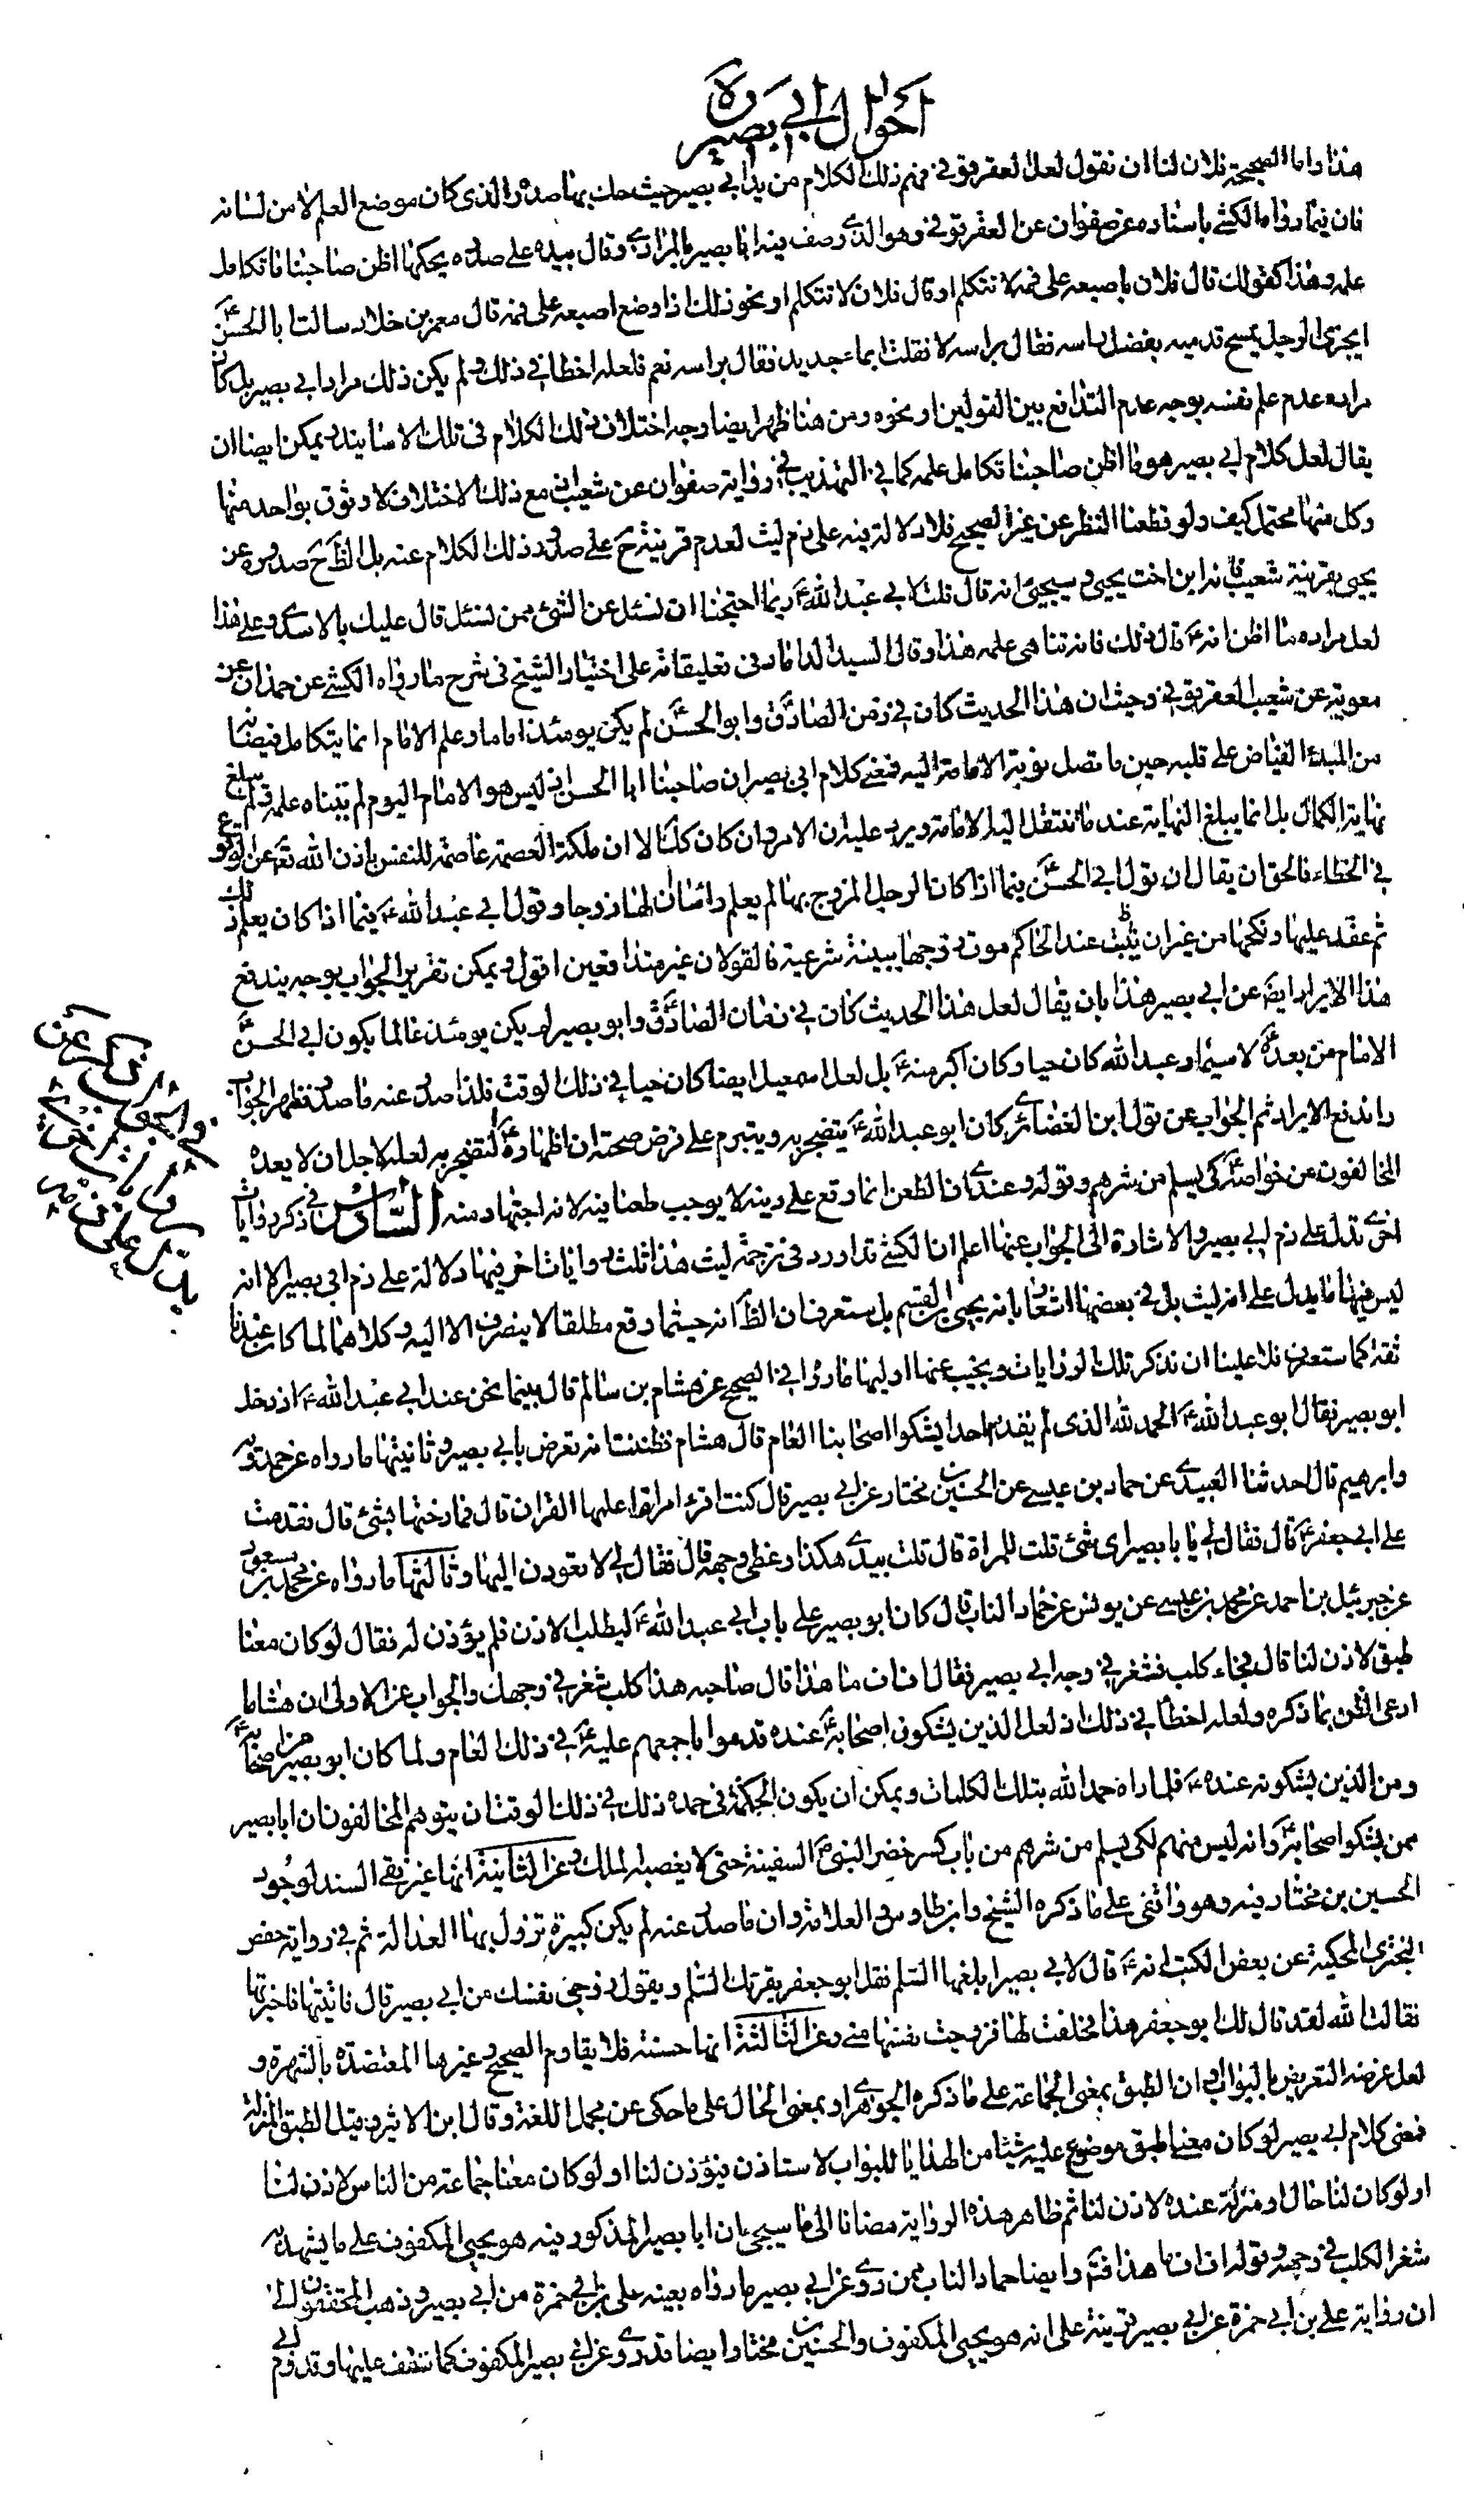 احوال ابي بصير ره
هذا واما الصحيحة فلان لنا ان نقول لعل العقرقوفي فهم ذلك الكلام من يد ابي بصير حيث حك بها صدره الذي كان موضع العلم لا من لسانه
فان فيما رواه الكشي باسناده عن صفوان عن العقرقوفي وهو الذي وصف فيه ابا بصير بالمرادي وقال بيده على صدره يحكها اظن صاحبنا ما تكامل
علمه وهذا كقولك قال فلان باصبعه على فمه لا تتكلم او قال فلان لا تتكلم او نحو ذلك اذا وضع اصبعه على فمه قال معمر بن خلاد سالت ابا الحسن ع
ايجزي الرجل يمسح قدميه بفضل راسه فقال براسه لا فقلت ابماء جديد فقال براسه نعم فلعله اخطا في ذلك ولم يكن ذلك مراد ابي بصير بل كان
مراده عدم علم نفسه بوجه عدم التدافع بين القولين او نحوه ومن هنا ظهر ايضا وجه اختلاف ذلك الكلام في تلك الاسانيد ويمكن ايضا ان
يقال لعل كلام ابي بصير هو ما اظن صاحبنا تكامل علمه كما في التهذيب في رواية صفوان عن شعيب مع ذلك الاختلاف لا وثوق بواحد منها
وكل منها محتمل كيف ولو قطعنا النظر عن غير الصحيح فلا دلالة فيه على ذم ليث لعدم قرينة ح على صدور ذلك الكلام عنه بل الظ ح صدوره عن
يحيى بقرينة شعيب فانه ابن اخت يحيى وسيجيئ انه قال قلت لابي عبد الله ع ربما احتجنا ان نسئل عن الشئ فمن نسئل قال عليك بالاسدي وعلى هذا
لعل مراده ما اظن انه ع قال ذلك فانه تناهى علمه هذا وقال السيد الداماد في تعليقاته على اختيار الشيخ في شرح ما رواه الكشي عن حمدان عن
معوية عن شعيب العقرقوفي وحيث ان هذا الحديث كان في زمن الصادق ع وابو الحسن ع لم يكن يومئذ اماما وعلم الامام انما يتكامل فيضانه
من المبدء الفياض على قلبه حين ما تصل نوبة الامامة اليه فمعنى كلام ابي بصير ان صاحبنا ابا الحسن اذ ليس هو الامام اليوم لم يتناه علمه ولم يبلغ
نهاية الكمال بل انما يبلغ النهاية عند ما تنتقل اليه الامامة ويرد عليه ان الامر وان كان كك الا ان ملكة العصمة عاصمة للنفس باذن الله تع عن الوقوع
في الخطاء فالحق ان يقال ان قول ابي الحسن ع فيما اذا كان الرجل المزوج بها لم يعلم راسا ان لها زوجا وقول ابي عبد الله ع فيما اذا كان يعلم ذلك
ثم عقد عليها ونكحها من غير ان يثبت عند الحاكم موت زوجها ببينة شرعية فالقولان غير متدافعين اقول ويمكن تقرير الجواب بوجه يندفع
هذا الايراد ايضا عن ابي بصير هذا بان يقال لعل هذا الحديث كان في زمان الصادق ع وابو بصير لم يكن يومئذ عالما بكون ابي الحسن ع
الامام من بعده لا سيما وعبد الله كان حيا وكان اكبر منه ع بل لعل اسمعيل ايضا كان حيا في ذلك الوقت فلذا صدر عنه ما صدر فظهر الجواب
واندفع الايراد ثم الجواب عن قول ابن الغضائري كان ابو عبد الله ع يتضجر به ويتبرم على فرض صحته ان اظهاره ع التضجر به لعله لاجل ان لا يعده
المخالفون من خواصه ع كي يسلم من شرهم وقوله وعندي ان الطعن انما وقع على دينه لا يوجب طعنا فيه لانه اجتهاد منه السادس في ذكر روايات
اخرى تدل على ذم ابي بصير والاشارة الى الجواب عنها اعلم ان الكشي قد اورد في ترجمة ليث هذا ثلث روايات اخر فيها دلالة على ذم ابي بصير الا انه
ليس فيها ما يدل على انه ليث بل في بعضها اشعار بانه يحيى بن القسم بل ستعرف ان الظ انه حيثما وقع مطلقا لا ينصرف الا اليه وكلاهما لما كان عندنا
ثقة كما ستعرف فلا علينا ان نذكر تلك الروايات ونجيب عنها اوليها ما رواه في الصحيح عن هشام بن سالم قال بينما نحن عند ابي عبد الله ع اذ دخل
ابو بصير فقال ابو عبد الله ع الحمد لله الذي لم يقدم احد يشكوا اصحابنا العام قال هشام فظننت انه تعرض بابي بصير وثانيتها ما رواه عن حمدويه
وابرهيم قال حدثنا العبيدي عن حماد بن عيسى عن الحسين بن مختار عن ابي بصير قال كنت اقرء امراة اعلمها القران قال فمازحتها بشئ قال فقدمت
على ابي جعفر ع قال فقال لي يا با بصير اي شئ قلت للمراة قال قلت بيدي هكذا وغطى وجهه قال فقال لي لا تعودن اليها وثالثتها ما رواه عن محمد بن مسعود
عن جبرئيل بن احمد عن محمد بن عيسى عن يونس عن حماد الناب قال كان ابو بصير على باب ابي عبد الله ع ليطلب الاذن فلم يؤذن له فقال لو كان معنا
طبق لاذن لنا قال فجاء كلب فشغر في وجه ابي بصير فقال اف اف ما هذا قال صاحبه هذا كلب شغر في وجهك والجواب عن الاولى ان هشاما
ادعى الظن بما ذكره ولعله اخطا في ذلك اذ لعل الذين يشكون اصحابه ع عنده قدموا باجمعهم عليه ع في ذلك العام ولما كان ابو بصير من اصحابه ع
ومن الذين يشكونه عنده ع فلما راه حمد الله بتلك الكلمات ويمكن ان يكون الحكمة في حمده ذلك في ذلك الوقت ان يتوهم المخالفون ان ابا بصير
ممن يشكوا اصحابه ع وانه ليس منهم لكي يسلم من شرهم من باب كسر خضر النبي ع السفينة حتى لا يغصبه الملك وعن الثانية انها غير نقي السند لوجود
الحسين بن مختار فيه وهو واقفي على ما ذكره الشيخ وابن طاوس والعلامة وان ما صدر عنه لم يكن كبيرة تزول بها العدالة ثم في رواية حفص
البختري المحكية عن بعض الكتب انه ع قال لابي بصير ابلغها السلم فقل ابو جعفر يقرئك السلم ويقول زوجي نفسك من ابي بصير قال فاتيتها فاخبرتها
فقالت الله لقد قال لك ابو جعفر هذا فحلفت لها فزوجت نفسها مني وعن الثالثة انها حسنة فلا يقاوم الصحيح وغيرها المعتضدة بالشهرة و
لعل غرضه التعريض بالبواب وان الطبق بمعنى الجماعة على ما ذكره الجوهري او بمعنى الحال على ما حكى عن مجمل اللغة وقال ابن الاثير وقيل الطبق المنزلة
فمعنى كلام ابي بصير لو كان معنا طبق موضوع عليه شيئا من الهدايا للبواب لاستاذن فيؤذن لنا او لو كان معنا جماعة من الناس لاذن لنا
او لو كان لنا حال او منزلة عنده لاذن لنا ثم ظاهر هذه الرواية مضافا الى ما سيجئ ان ابا بصير المذكور فيه هو يحيى المكفوف على ما يشهد به
شغر الكلب في وجهه وقوله اف اف ما هذا فتم وايضا حماد الناب ممن روى عن ابي بصير ما رواه بعينه علي بن ابي حمزة من ابي بصير وذهب المحققون الى
ان رواية علي بن ابي حمزة عن ابي بصير قرينة على انه هو يحيى المكفوف والحسين بن مختار ايضا قد روى عن ابي بصير المكفوف كما ستقف عليها وقد روم